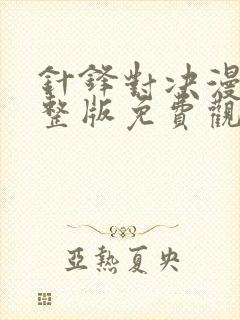 針鋒對决漫
整版免費觀
亞熱夏央